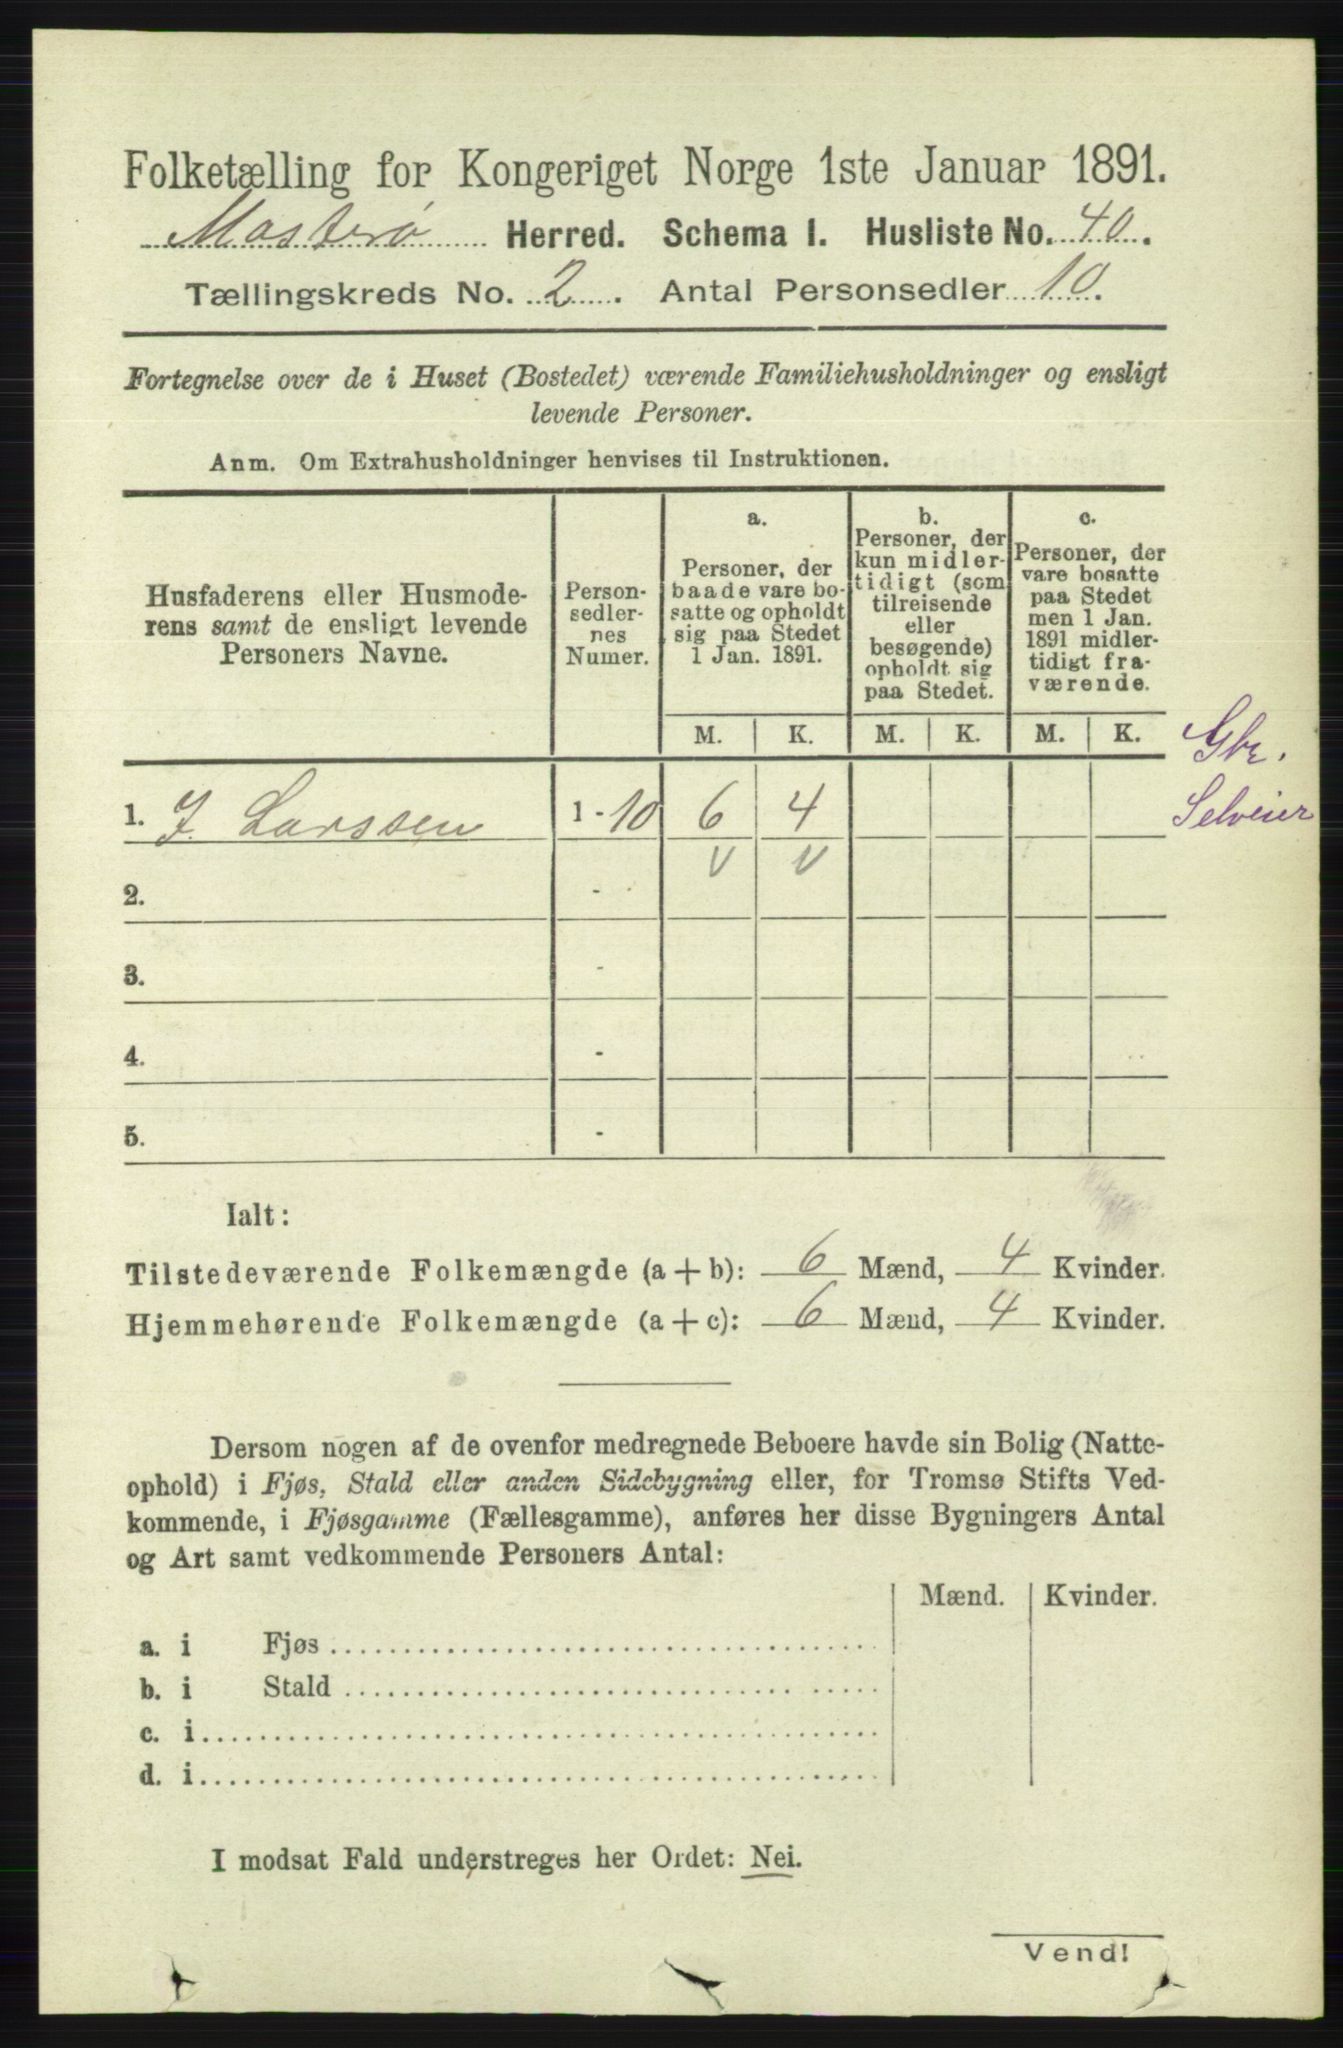 Folketælling for Kongeriget Norge 1ste Januar 1891.
Mosterø Herred. Schema I. Husliste No. 40.
Tællingskreds No. 2. Antal Personsedler 10.
Fortegnelse over de i Huset (Bostedet) værende Familiehusholdninger og ensligt
levende Personer.
Anm. Om Extrahusholdninger henvises til Instruktionen.
Husfaderens eller Husmode-
rens samt de ensligt levende
Personers Navne.
Person-
sedler-
nes
Numer.
a.
Personer, der
baade vare bo-
satte og opholdt
sig paa Stedet
1 Jan. 1891.
b.
Personer, der
kun midler-
tidigt (som
tilreisende
eller
besøgende)
opholdt sig
paa Stedet.
c.
Personer, der
vare bosatte
paa Stedet
men 1 Jan.
1891 midler-
tidigt fra-
værende.
M. K. M. K. M. K.
Gbr.
Selveier
1. J. Larssen 1-10 6 4
V V
2. -
3. -
4. -
5. -
Ialt:
Tilstedeværende Folkemængde (a+b): 6 Mænd, 4 Kvinder.
Hjemmehørende Folkemængde (a+c): 6 Mænd, 4 Kvinder.
Dersom nogen af de ovenfor medregnede Beboere havde sin Bolig (Natte-
ophold) i Fjøs, Stald eller anden Sidebygning eller, for Tromsø Stifts Ved-
kommende, i Fjøsgamme (Fællesgamme), anføres her disse Bygningers Antal
og Art samt vedkommende Personers Antal:
Mænd. Kvinder.
a. i Fjøs
b. i Stald
c. i
d. i
I modsat Fald understreges her Ordet: Nei.
Vend!